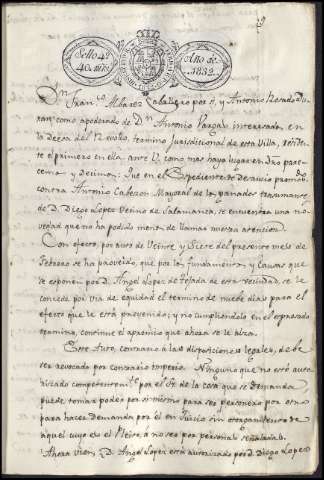 Sello 4º
40 mrs.
Año de
1832.
Dn. Franco. Albarez Caballero por si, y Antonio Rosado Du-
ran como apoderado de Dn. Antonio Vargas interesado en
la deesa del termino Jurisdicional de esta Villa, resiste
te el primero en ella, ante V. como mas haya lugar en Dro. parece-
mos y decimos: Que en el Expediente de desaucio promobo.
contra Antonio Cabezon Mayoral de los ganados trasumante
de D. Diego Lopez Vecino de Salamanca, se encuentra una no-
vedad que no ha podido menos de llamar nuestra atencion.
Con efecto, por auto de Veinte y Siete del presente mes de
Febrero se ha proveido, que por los fundamentos y causas que
se esponen por D. Angel Lopez de Tejada de esta vecindad, se le
concede por via de equidad el termino de nuebe dias para el
efecto que le está prevenido; y no cumpliendolo en el espresado
termino, continue el apremio que ahora se le alza.
Este Auto, contrario á las disposiciones legales, debe
ser revocado por contrario imperio. Ninguno que no está auto-
rizado competentemte. por el Sr. de la cosa que se demanda
puede tomar poder por si mismo para ser personero por otro
para hacer demanda por él en Juicio sin otorgamiento de
aquel cuyo es el Pleito á no ser por personas señaladas.
Ahora vien, D. Angel Lopez está autorizado por D. Diego Lopez